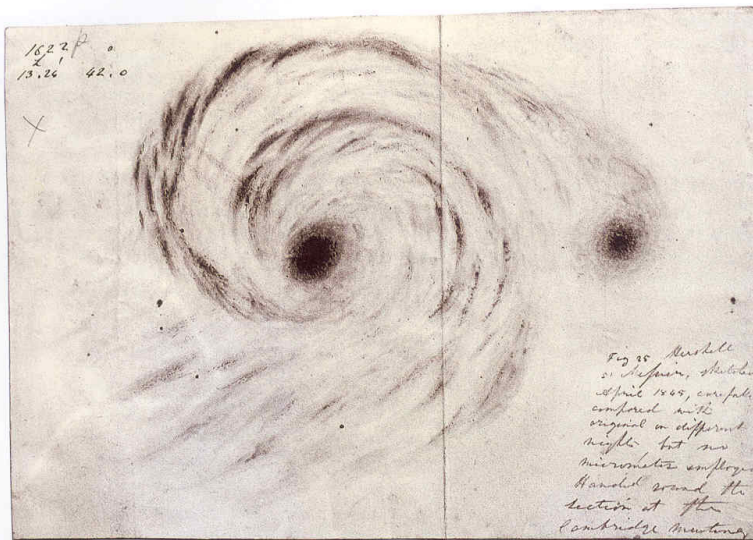 1622
h
13.24 42.0
X
Fig 25 Herschell
sketched
April 1845, careful
compared with
original on different
nights but no
micrometer employed
Handed round the
section at the
Cambridge meeting